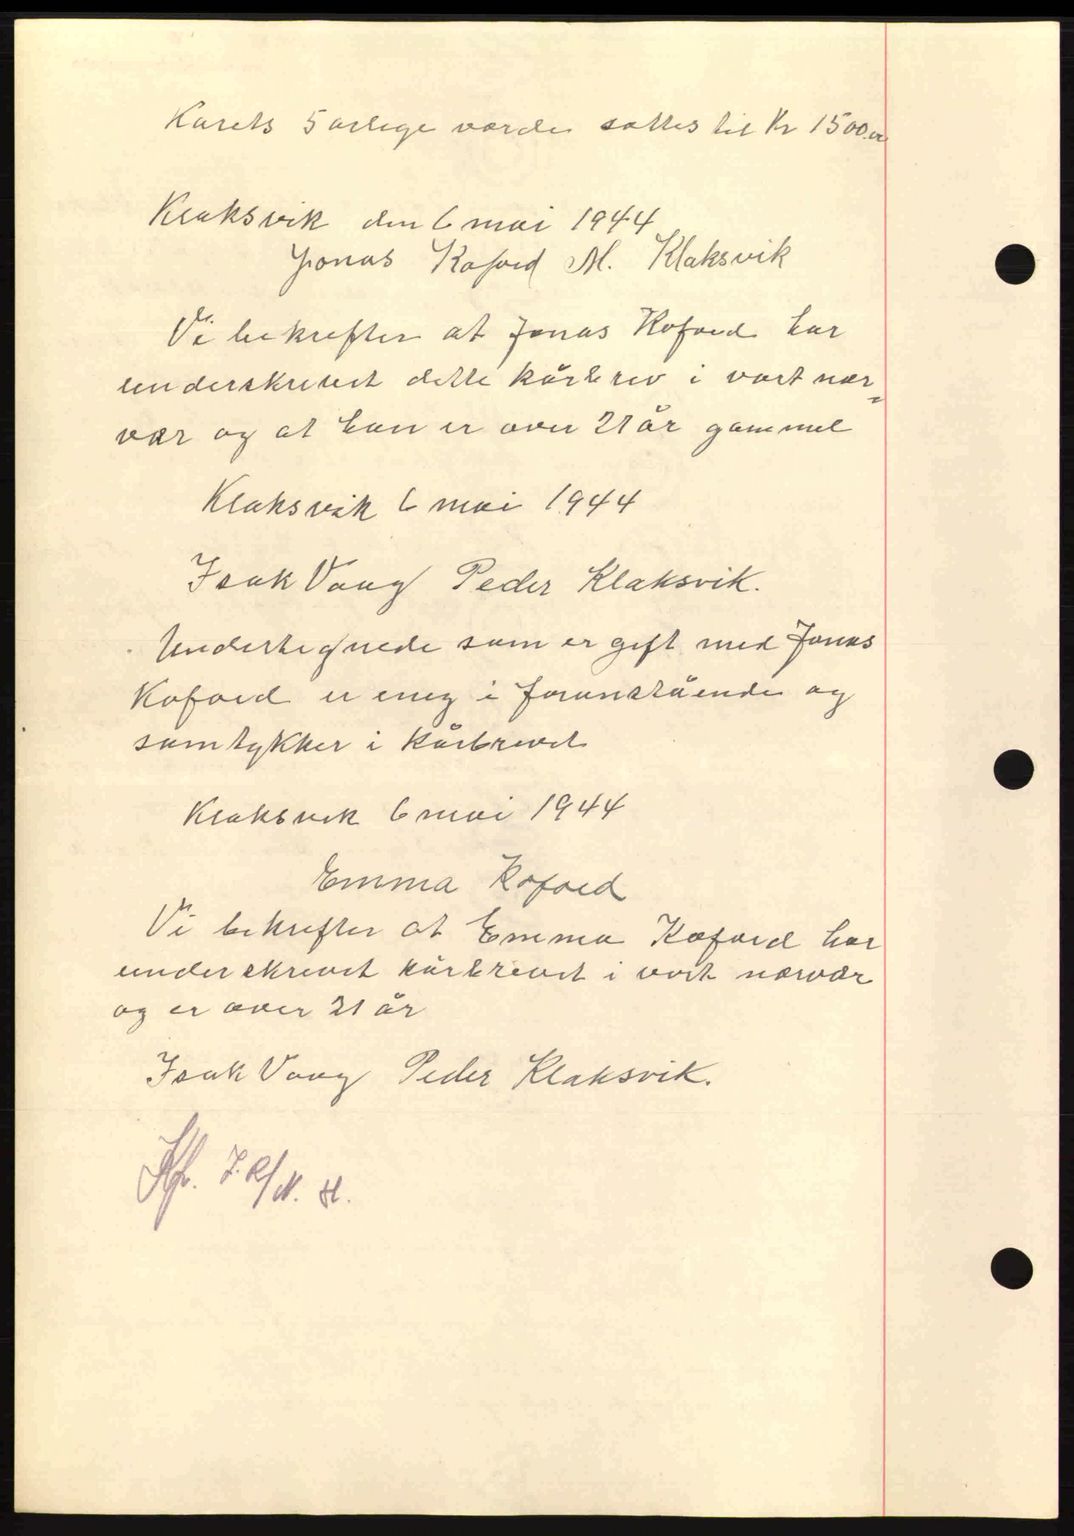 Kårets 5 årlige værdi sættes til Kr 1500.00
Klaksvik den 6 mai 1944
Jonas Kofoed M. Klaksvik
Vi bekrefter at Jonas Kofoed har
underskrevet dette kårbrev i vort nær=
vær og at han er over 21 år gammel
Klaksvik 6 mai 1944
Isak Vaag Peder Klaksvik.
Undertegnede som er gift med Jonas
Kofoed er eneg i foranstående og
samtykker i kårbrevet
Klaksvik 6 mai 1944
Emma Kofoed
Vi bekrefter at Emma Kofoed har
underskrevet kårbrevet i vort nærvær
og er over 21 år
Isak Vaag Peder Klaksvik.